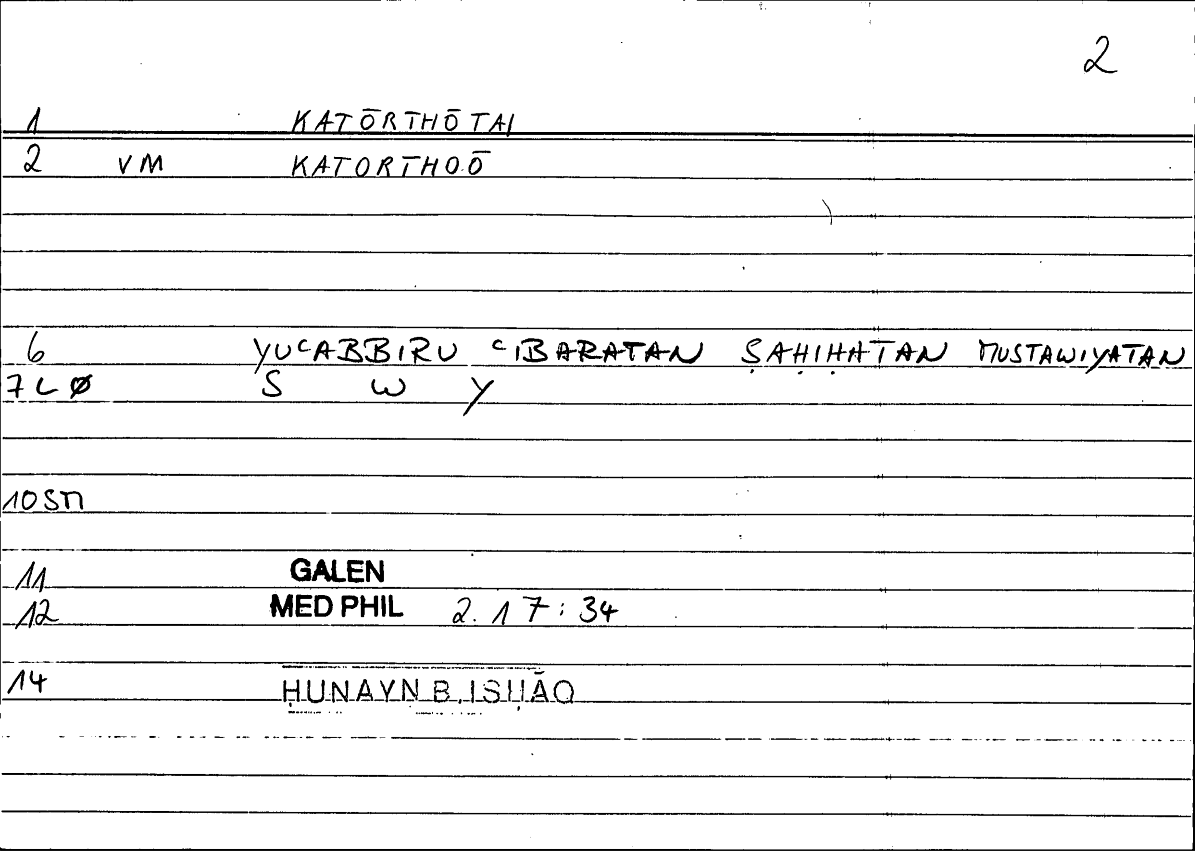 2
1 KATŌRTHŌTAI
2 VM KATORTHOŌ
6 YUCABBIRU CIBARATAN ṢAḤIḤATAN MUSTAWIYATAN
7 L Ø S W Y
10 SM
11 GALEN
12 MED PHIL 2.17:34
14 ḤUNAYN B. ISḤĀQ